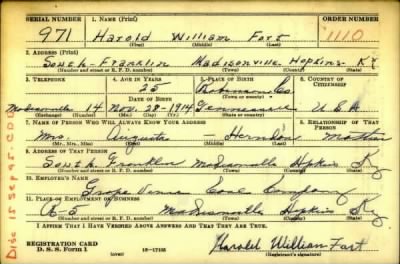 SERIAL NUMBER 1. NAME (Print) ORDER NUMBER
971 Harold William Fort 1110
(First) (Middle) (Last)
2. ADDRESS (Print)
South-Franklin Madisonville Hopkins Ky
(Number and street or R. F. D. number) (Town) (County) (State)
3. TELEPHONE 4. AGE IN YEARS 5. PLACE OF BIRTH 6. COUNTRY OF CITIZENSHIP
25 Robinson Co.
DATE OF BIRTH (Town or county)
14 Nov. 28-1914 Tennessee U S A
(Exchange) (Number) (Mo.) (Day) (Yr.) (State or country)
7. NAME OF PERSON WHO WILL ALWAYS KNOW YOUR ADDRESS 8. RELATIONSHIP OF THAT PERSON
Mrs. Augusta - Herndon Mother
(Mr., Mrs., Miss) (First) (Middle) (Last)
9. ADDRESS OF THAT PERSON
South Franklin Madisonville Hopkins Ky
(Number and street or R. F. D. number) (Town) (County) (State)
10. EMPLOYER'S NAME
Coal Company
11. PLACE OF EMPLOYMENT OR BUSINESS
R-5 Madisonville Hopkins Ky
(Number and street or R. F. D. number) (Town) (County) (State)
I AFFIRM THAT I HAVE VERIFIED ABOVE ANSWERS AND THAT THEY ARE TRUE.
REGISTRATION CARD
D. S. S. Form 1 (over) 16-17105 Harold William Fort
(Registrant's signature)
Disc 15 Sep 45. CDD